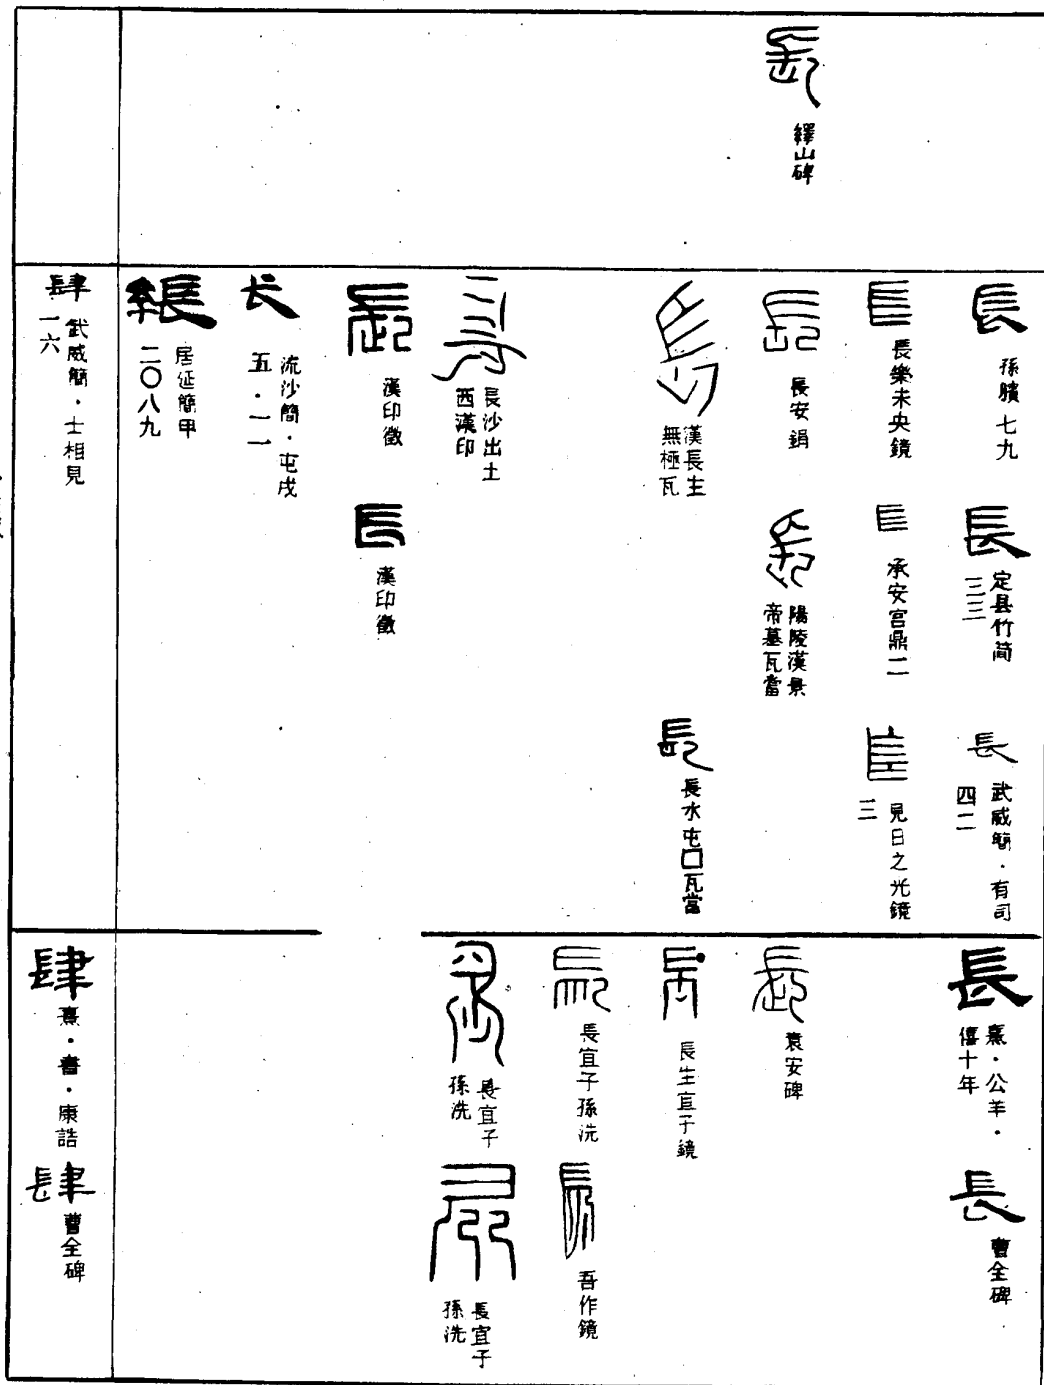 長
繹山碑
長
孫臏七九
長
定县竹简
三三
長
武威簡·有司
四二
長
長樂未央鏡
長
承安宫鼎二
長
見日之光鏡
三
長
長安鋗
長
陽陵漢景
帝墓瓦當
長
漢長生
無極瓦
長
長水屯口瓦當
長
長沙出土
西漢印
長
漢印徵
長
漢印徵
長
流沙簡·屯戍
五·一一
居延簡甲
二〇八九
肆
武威簡·士相見
一六
長
熹·公羊·
僖十年
長
曹全碑
長
袁安碑
長
長生宜子鏡
長
長宜子孫洗
長
吾作鏡
長
長宜子
孫洗
長
長宜子
孫洗
肆
熹·書·康誥
肆
曹全碑